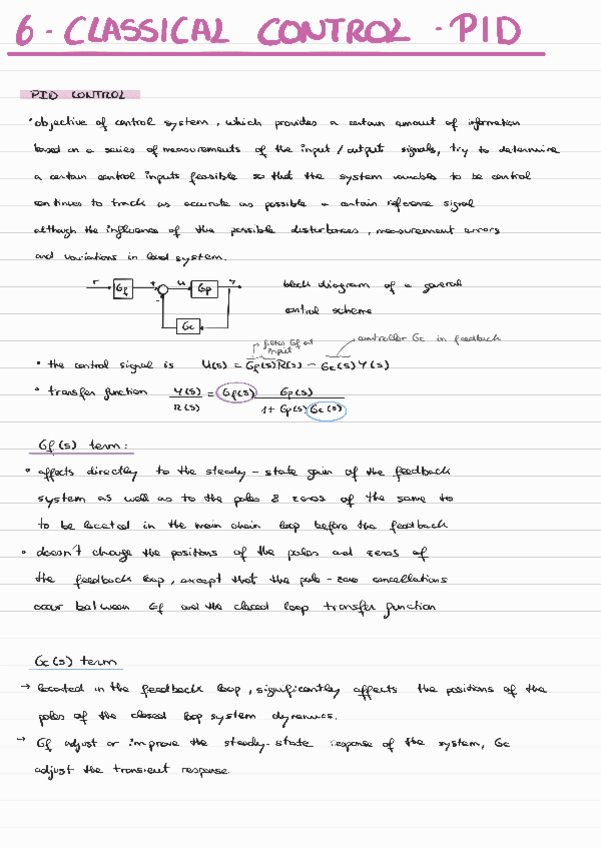 6 - CLASSICAL CONTROL - PID
PID CONTROL
• objective of control system, which provides a certain amount of information
based on a series of measurements of the input / output signals, try to determine
a certain control inputs feasible so that the system variables to be control
continues to track as accurate as possible a certain reference signal
although the influence of the possible disturbances, measurement errors
and variations in load system.
r Gf + - u Gp y
Gc
block diagram of a general
control scheme
filter Gf at input
controller Gc in feedback
• the control signal is U(s) = Gf(s)R(s) - Gc(s)Y(s)
• transfer function Y(s)/R(s) = Gf(s) Gp(s)/1+Gp(s)Gc(s)
Gf(s) term:
• affects directly to the steady-state gain of the feedback
system as well as to the poles & zeros of the same to
to be located in the main chain loop before the feedback
• doesn't change the positions of the poles and zeros of
the feedback loop, except that the pole-zero cancellations
occur between Gf and the closed loop transfer function
Gc(s) term
→ located in the feedback loop, significantly affects the positions of the
poles of the closed loop system dynamics.
→ Gf adjust or improve the steady-state response of the system, Gc
adjust the transient response.